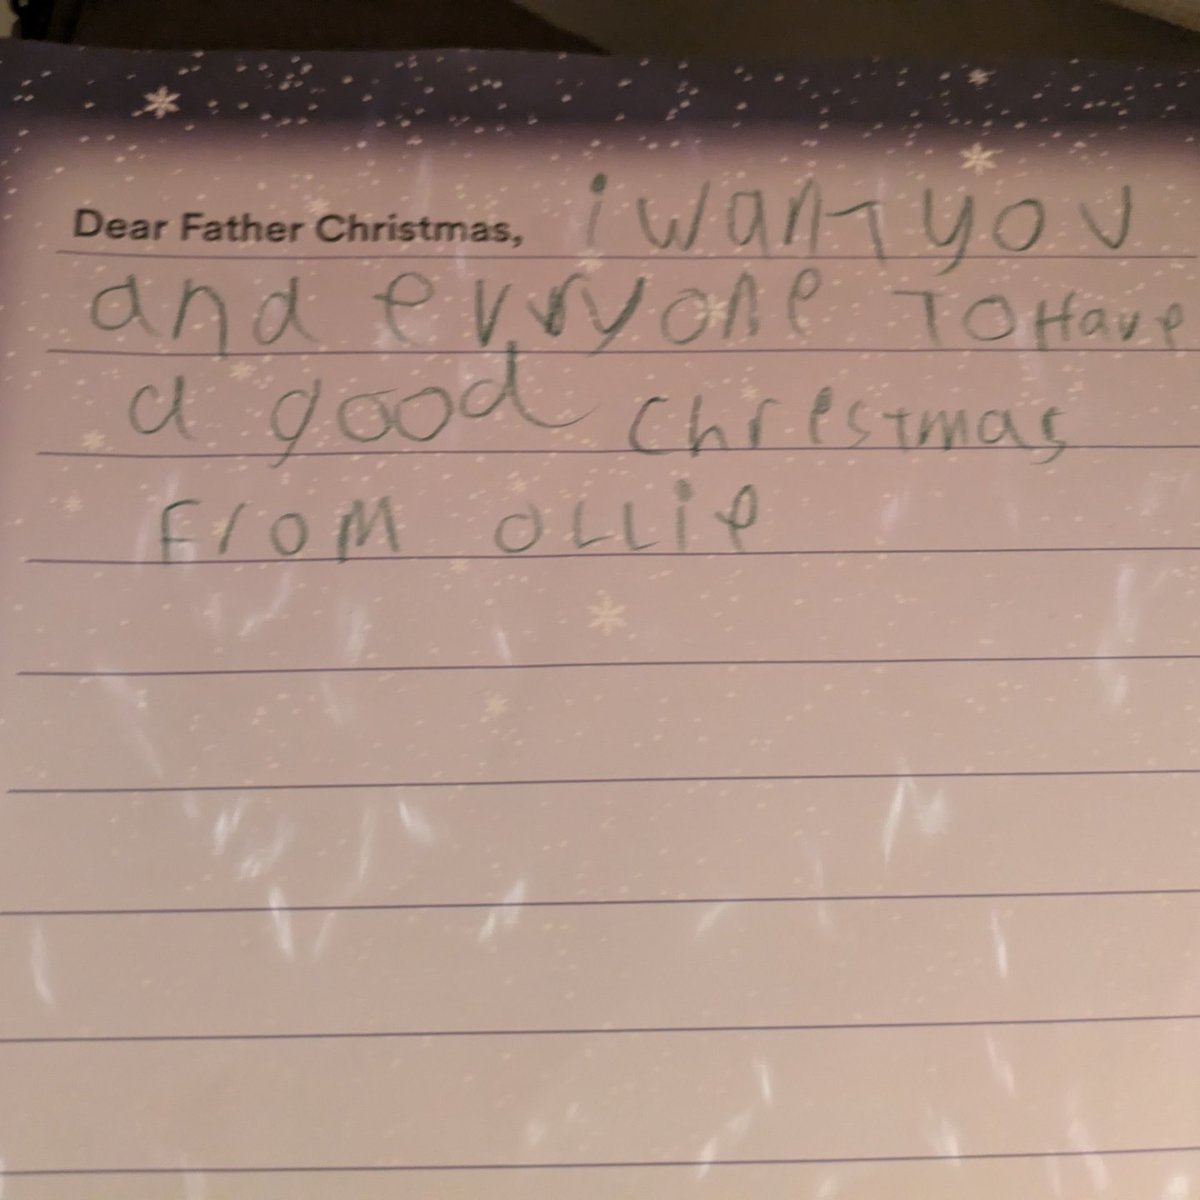 Dear Father Christmas, i want you
and evryone To Have
a good chrestmas
From oLLie